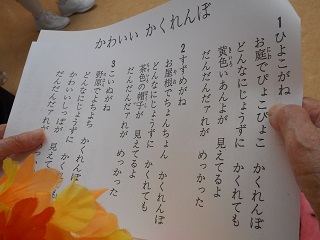 かわいい かくれんぼ
1 ひよこがね
お庭でぴょこぴょこ かくれんぼ
どんなにじょうずに かくれても
黄色いあんよが 見えてるよ
だんだんだァれが めっかった
2 すずめがね
お屋根でちょんちょん かくれんぼ
どんなにじょうずに かくれても
茶色の帽子が 見えてるよ
だんだんだァれが めっかった
3 こいぬがね
野原でよちよち かくれんぼ
どんなにじょうずに かくれても
かわいいしっぽが 見えてる
だんだんだァれが